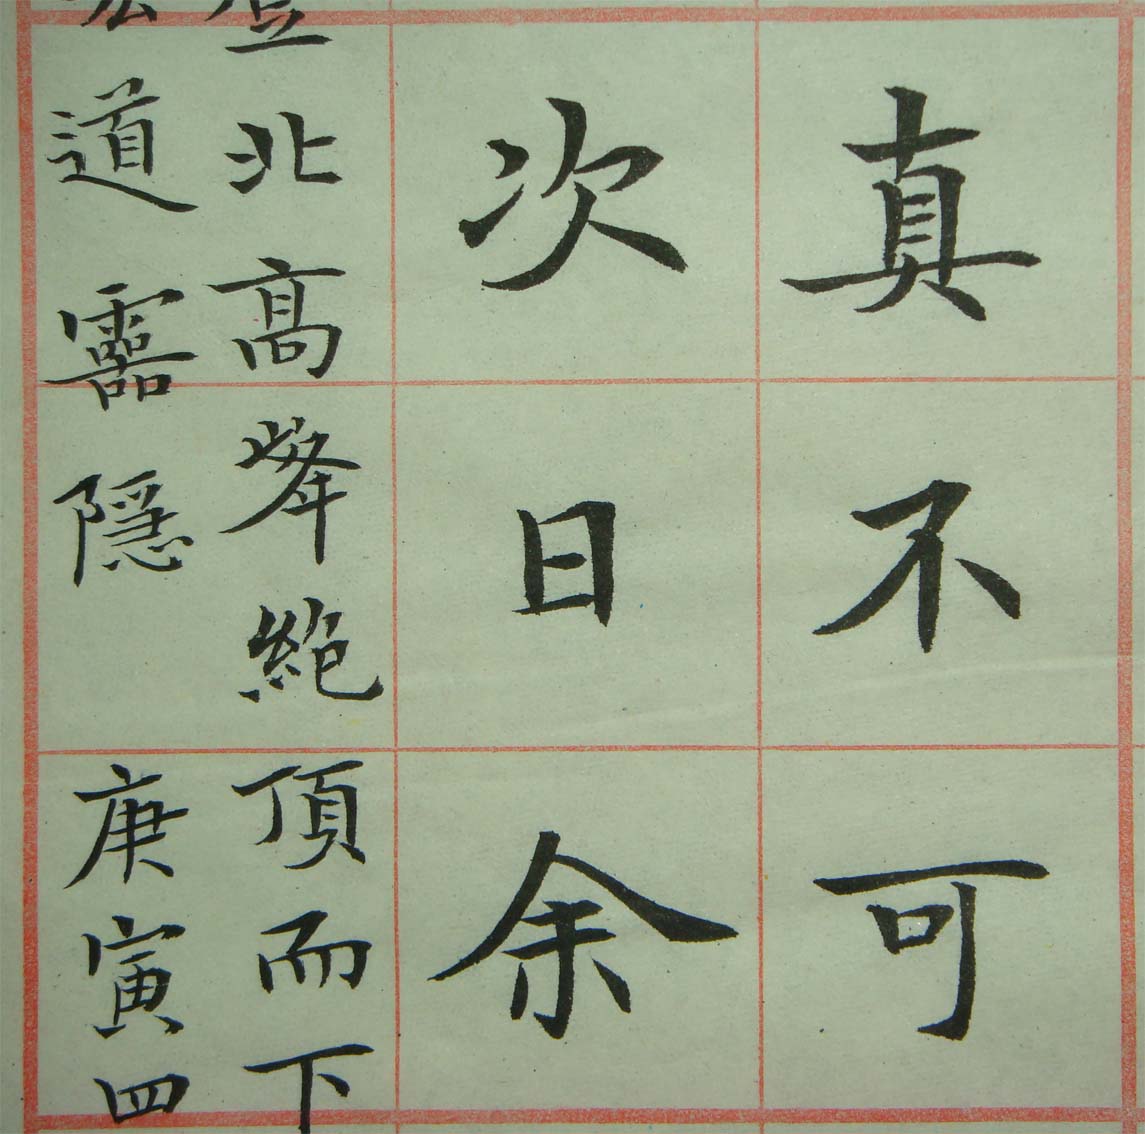 真不可
次日余
登北高峯絶頂而下
道霛隱庚寅四